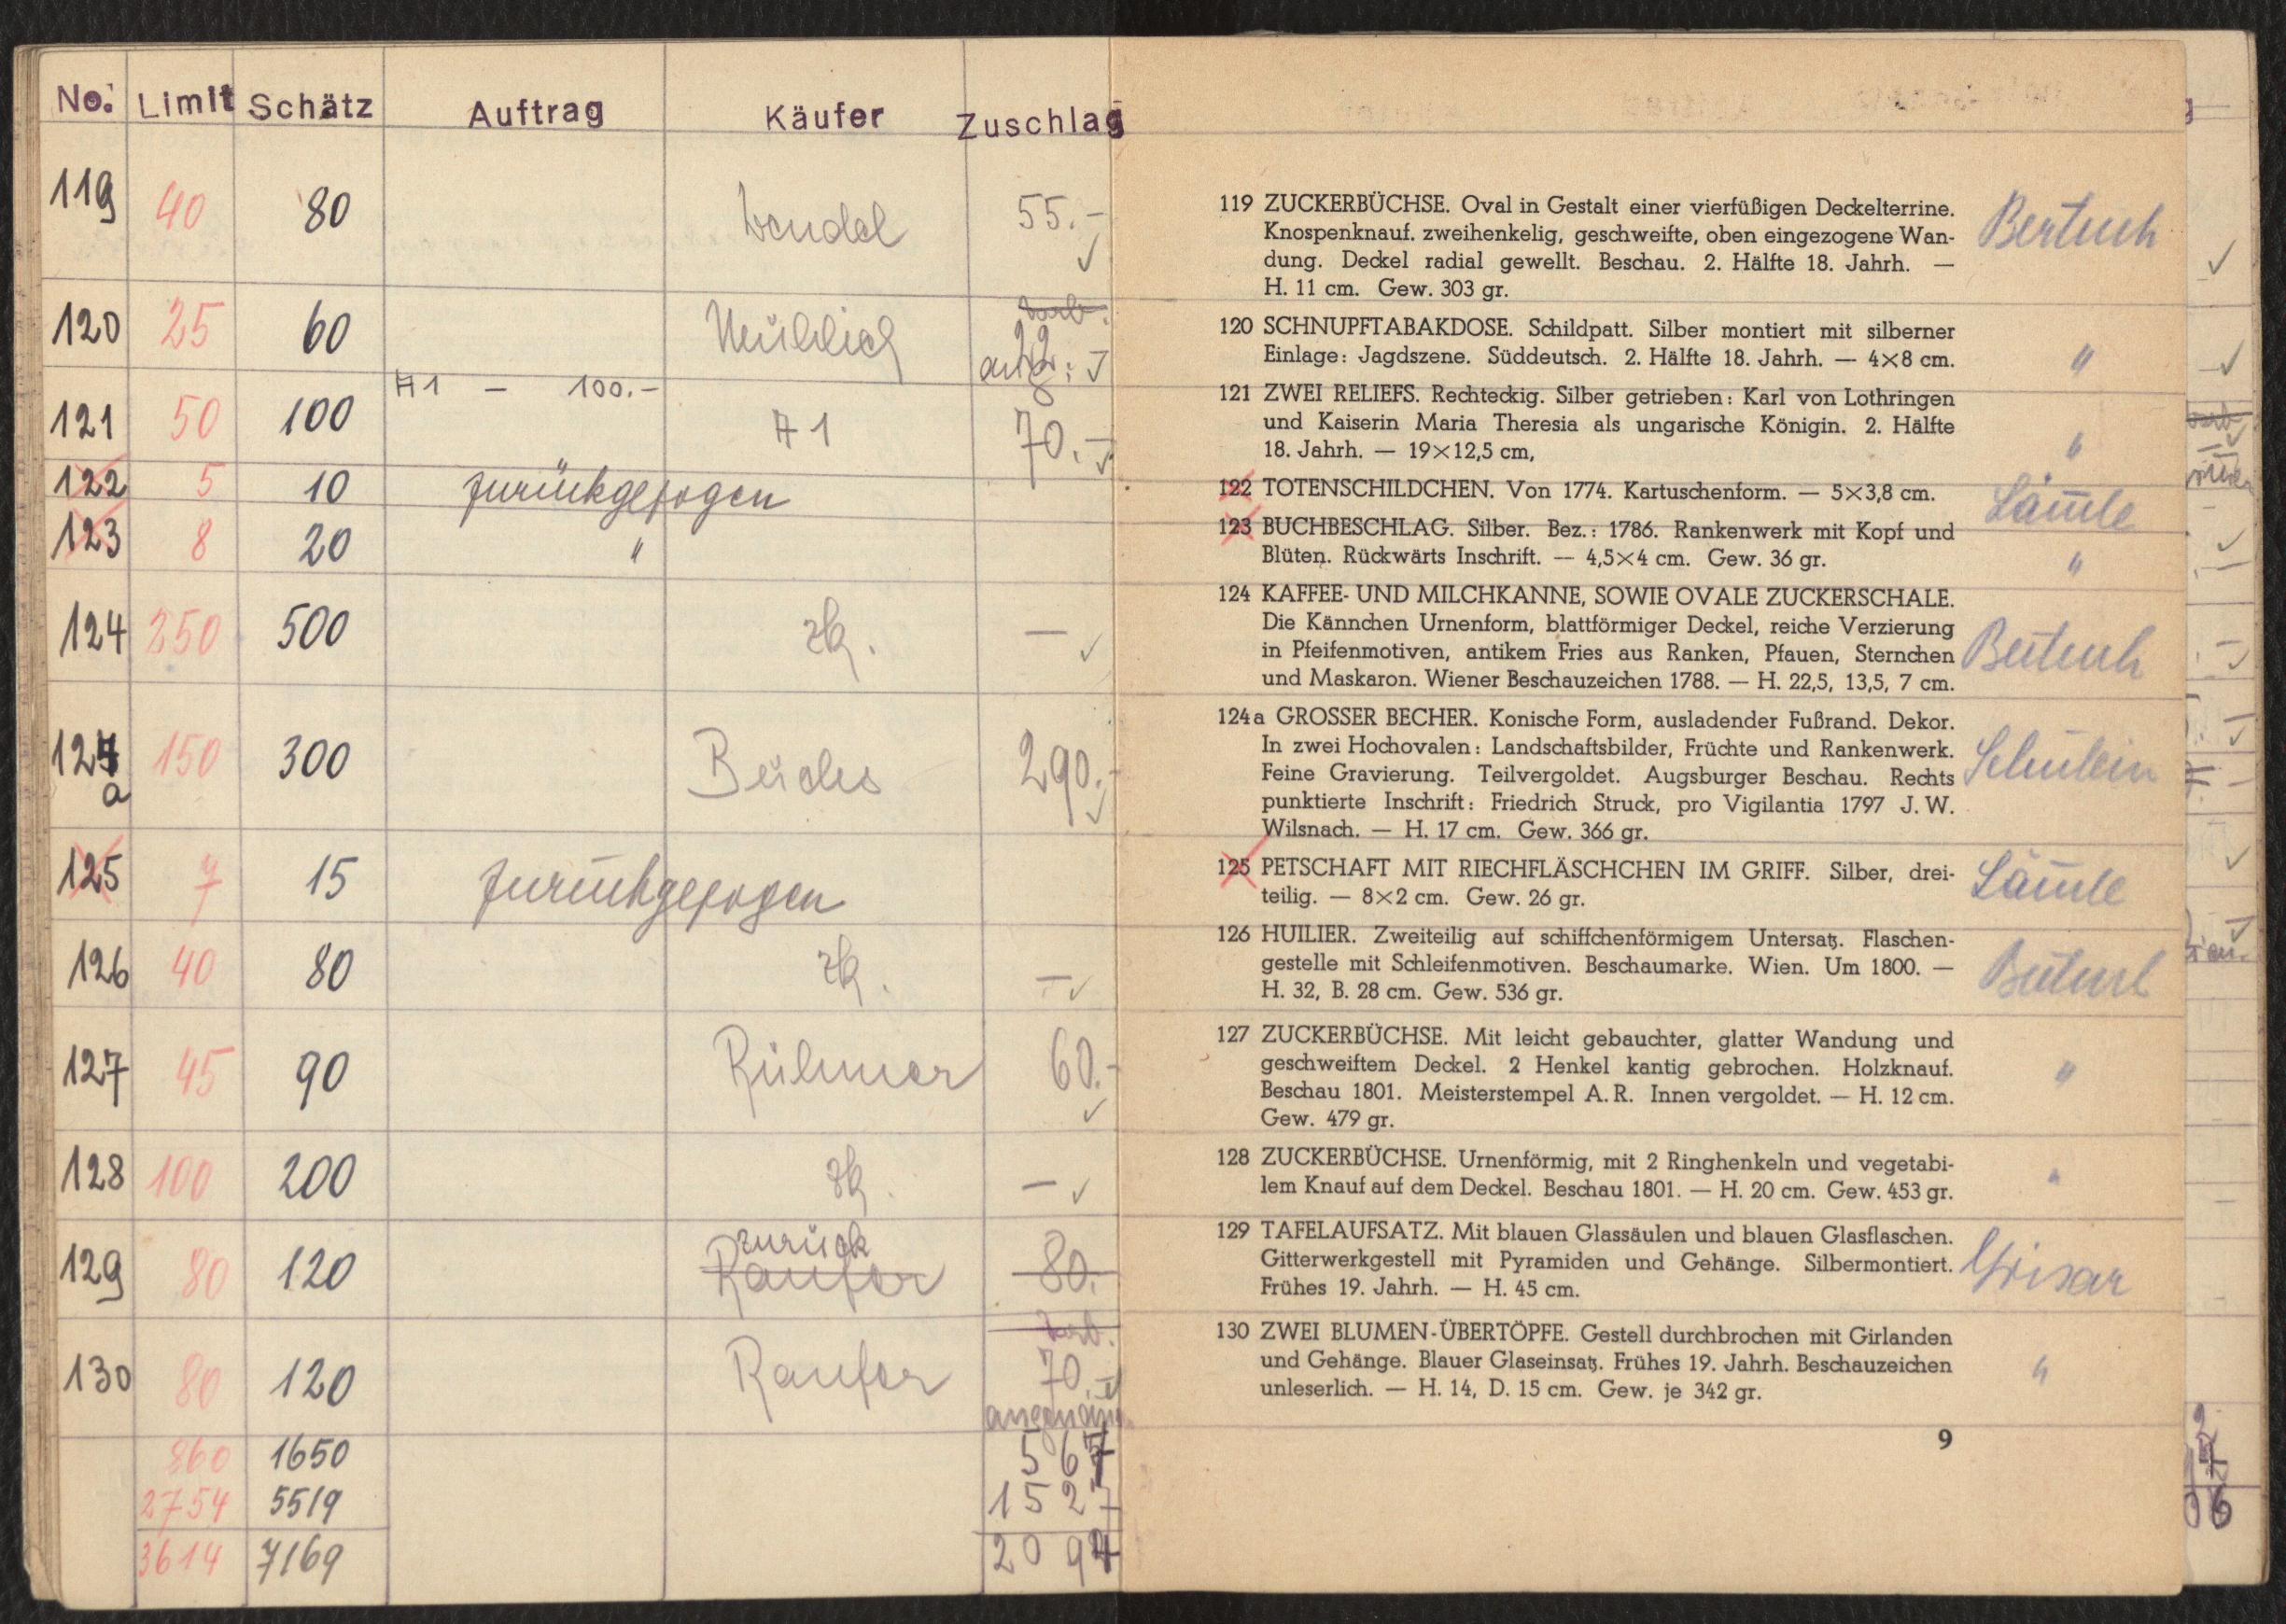 No. Limit Schätz Auftrag Käufer Zuschlag
119 40 80 Wendel 55.-
120 25 60 Mühlich vorb. 22.- ang.
H1 - 100.-
121 50 100 H1 70.-
122 5 10 zurückgezogen
123 8 20 "
124 250 500 zk. -
124a 150 300 290.-
125 7 15 zurückgezogen
126 40 80 zk. -
127 45 90 60.-
128 100 200 zk. -
zurück
129 80 120 Kaufer 80.-
vorb.
130 80 120 Kaufer 70.-
angenom
860 1650 567
2754 5519 1527
3614 7169 2094
119 ZUCKERBÜCHSE. Oval in Gestalt einer vierfüßigen Deckelterrine. Bertuch
Knospenknauf. zweihenkelig, geschweifte, oben eingezogene Wan-
dung. Deckel radial gewellt. Beschau. 2. Hälfte 18. Jahrh. —
H. 11 cm. Gew. 303 gr.
120 SCHNUPFTABAKDOSE. Schildpatt. Silber montiert mit silberner
Einlage: Jagdszene. Süddeutsch. 2. Hälfte 18. Jahrh. — 4×8 cm. "
121 ZWEI RELIEFS. Rechteckig. Silber getrieben: Karl von Lothringen
und Kaiserin Maria Theresia als ungarische Königin. 2. Hälfte
18. Jahrh. — 19×12,5 cm, "
122 TOTENSCHILDCHEN. Von 1774. Kartuschenform. — 5×3,8 cm. Lämle
123 BUCHBESCHLAG. Silber. Bez.: 1786. Rankenwerk mit Kopf und
Blüten. Rückwärts Inschrift. — 4,5×4 cm. Gew. 36 gr. "
124 KAFFEE- UND MILCHKANNE, SOWIE OVALE ZUCKERSCHALE.
Die Kännchen Urnenform, blattförmiger Deckel, reiche Verzierung
in Pfeifenmotiven, antikem Fries aus Ranken, Pfauen, Sternchen Bertuch
und Maskaron. Wiener Beschauzeichen 1788. — H. 22,5, 13,5, 7 cm.
124a GROSSER BECHER. Konische Form, ausladender Fußrand. Dekor.
In zwei Hochovalen: Landschaftsbilder, Früchte und Rankenwerk. Schülein
Feine Gravierung. Teilvergoldet. Augsburger Beschau. Rechts
punktierte Inschrift: Friedrich Struck, pro Vigilantia 1797 J. W.
Wilsnach. — H. 17 cm. Gew. 366 gr.
125 PETSCHAFT MIT RIECHFLÄSCHCHEN IM GRIFF. Silber, drei- Lämle
teilig. — 8×2 cm. Gew. 26 gr.
126 HUILIER. Zweiteilig auf schiffchenförmigem Untersatz. Flaschen-
gestelle mit Schleifenmotiven. Beschaumarke. Wien. Um 1800. — Bertuch
H. 32, B. 28 cm. Gew. 536 gr.
127 ZUCKERBÜCHSE. Mit leicht gebauchter, glatter Wandung und
geschweiftem Deckel. 2 Henkel kantig gebrochen. Holzknauf. "
Beschau 1801. Meisterstempel A. R. Innen vergoldet. — H. 12 cm.
Gew. 479 gr.
128 ZUCKERBÜCHSE. Urnenförmig, mit 2 Ringhenkeln und vegetabi-
lem Knauf auf dem Deckel. Beschau 1801. — H. 20 cm. Gew. 453 gr. "
129 TAFELAUFSATZ. Mit blauen Glassäulen und blauen Glasflaschen.
Gitterwerkgestell mit Pyramiden und Gehänge. Silbermontiert. Grisar
Frühes 19. Jahrh. — H. 45 cm.
130 ZWEI BLUMEN-ÜBERTÖPFE. Gestell durchbrochen mit Girlanden
und Gehänge. Blauer Glaseinsatz. Frühes 19. Jahrh. Beschauzeichen "
unleserlich. — H. 14, D. 15 cm. Gew. je 342 gr.
9